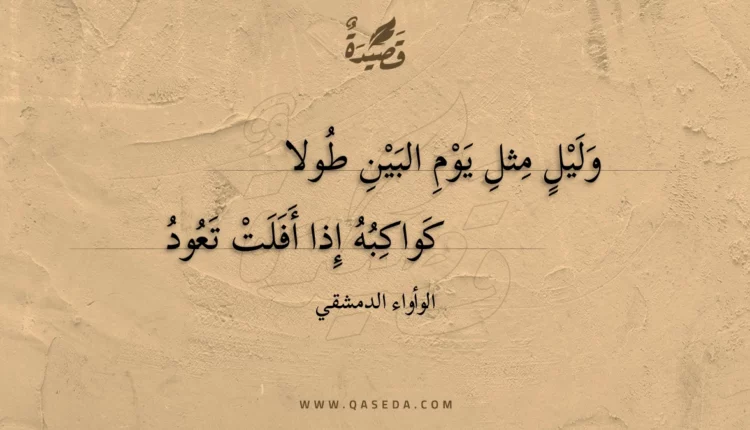 قَصِيدَةٌ
وَلَيْلٍ مِثلِ يَوْمِ البَيْنِ طُولا
كَواكِبُهُ إِذا أَفَلَتْ تَعُودُ
الوأواء الدمشقي
WWW.QASEDA.COM